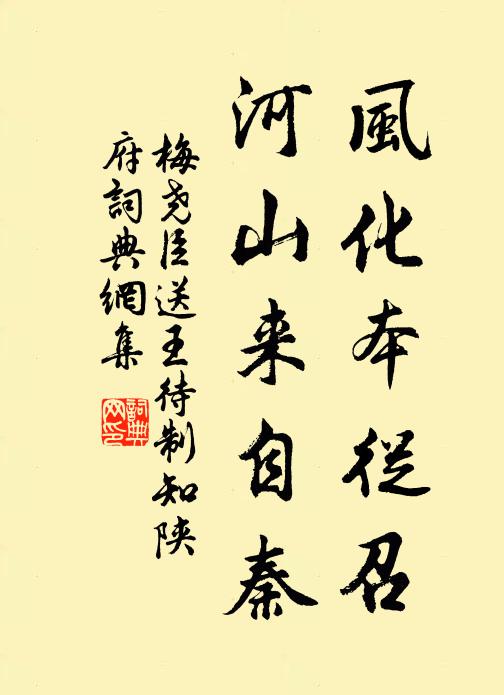 風化本從召
河山来自秦
梅尧臣送王待制知陝
府詞典網集
詞典
网印